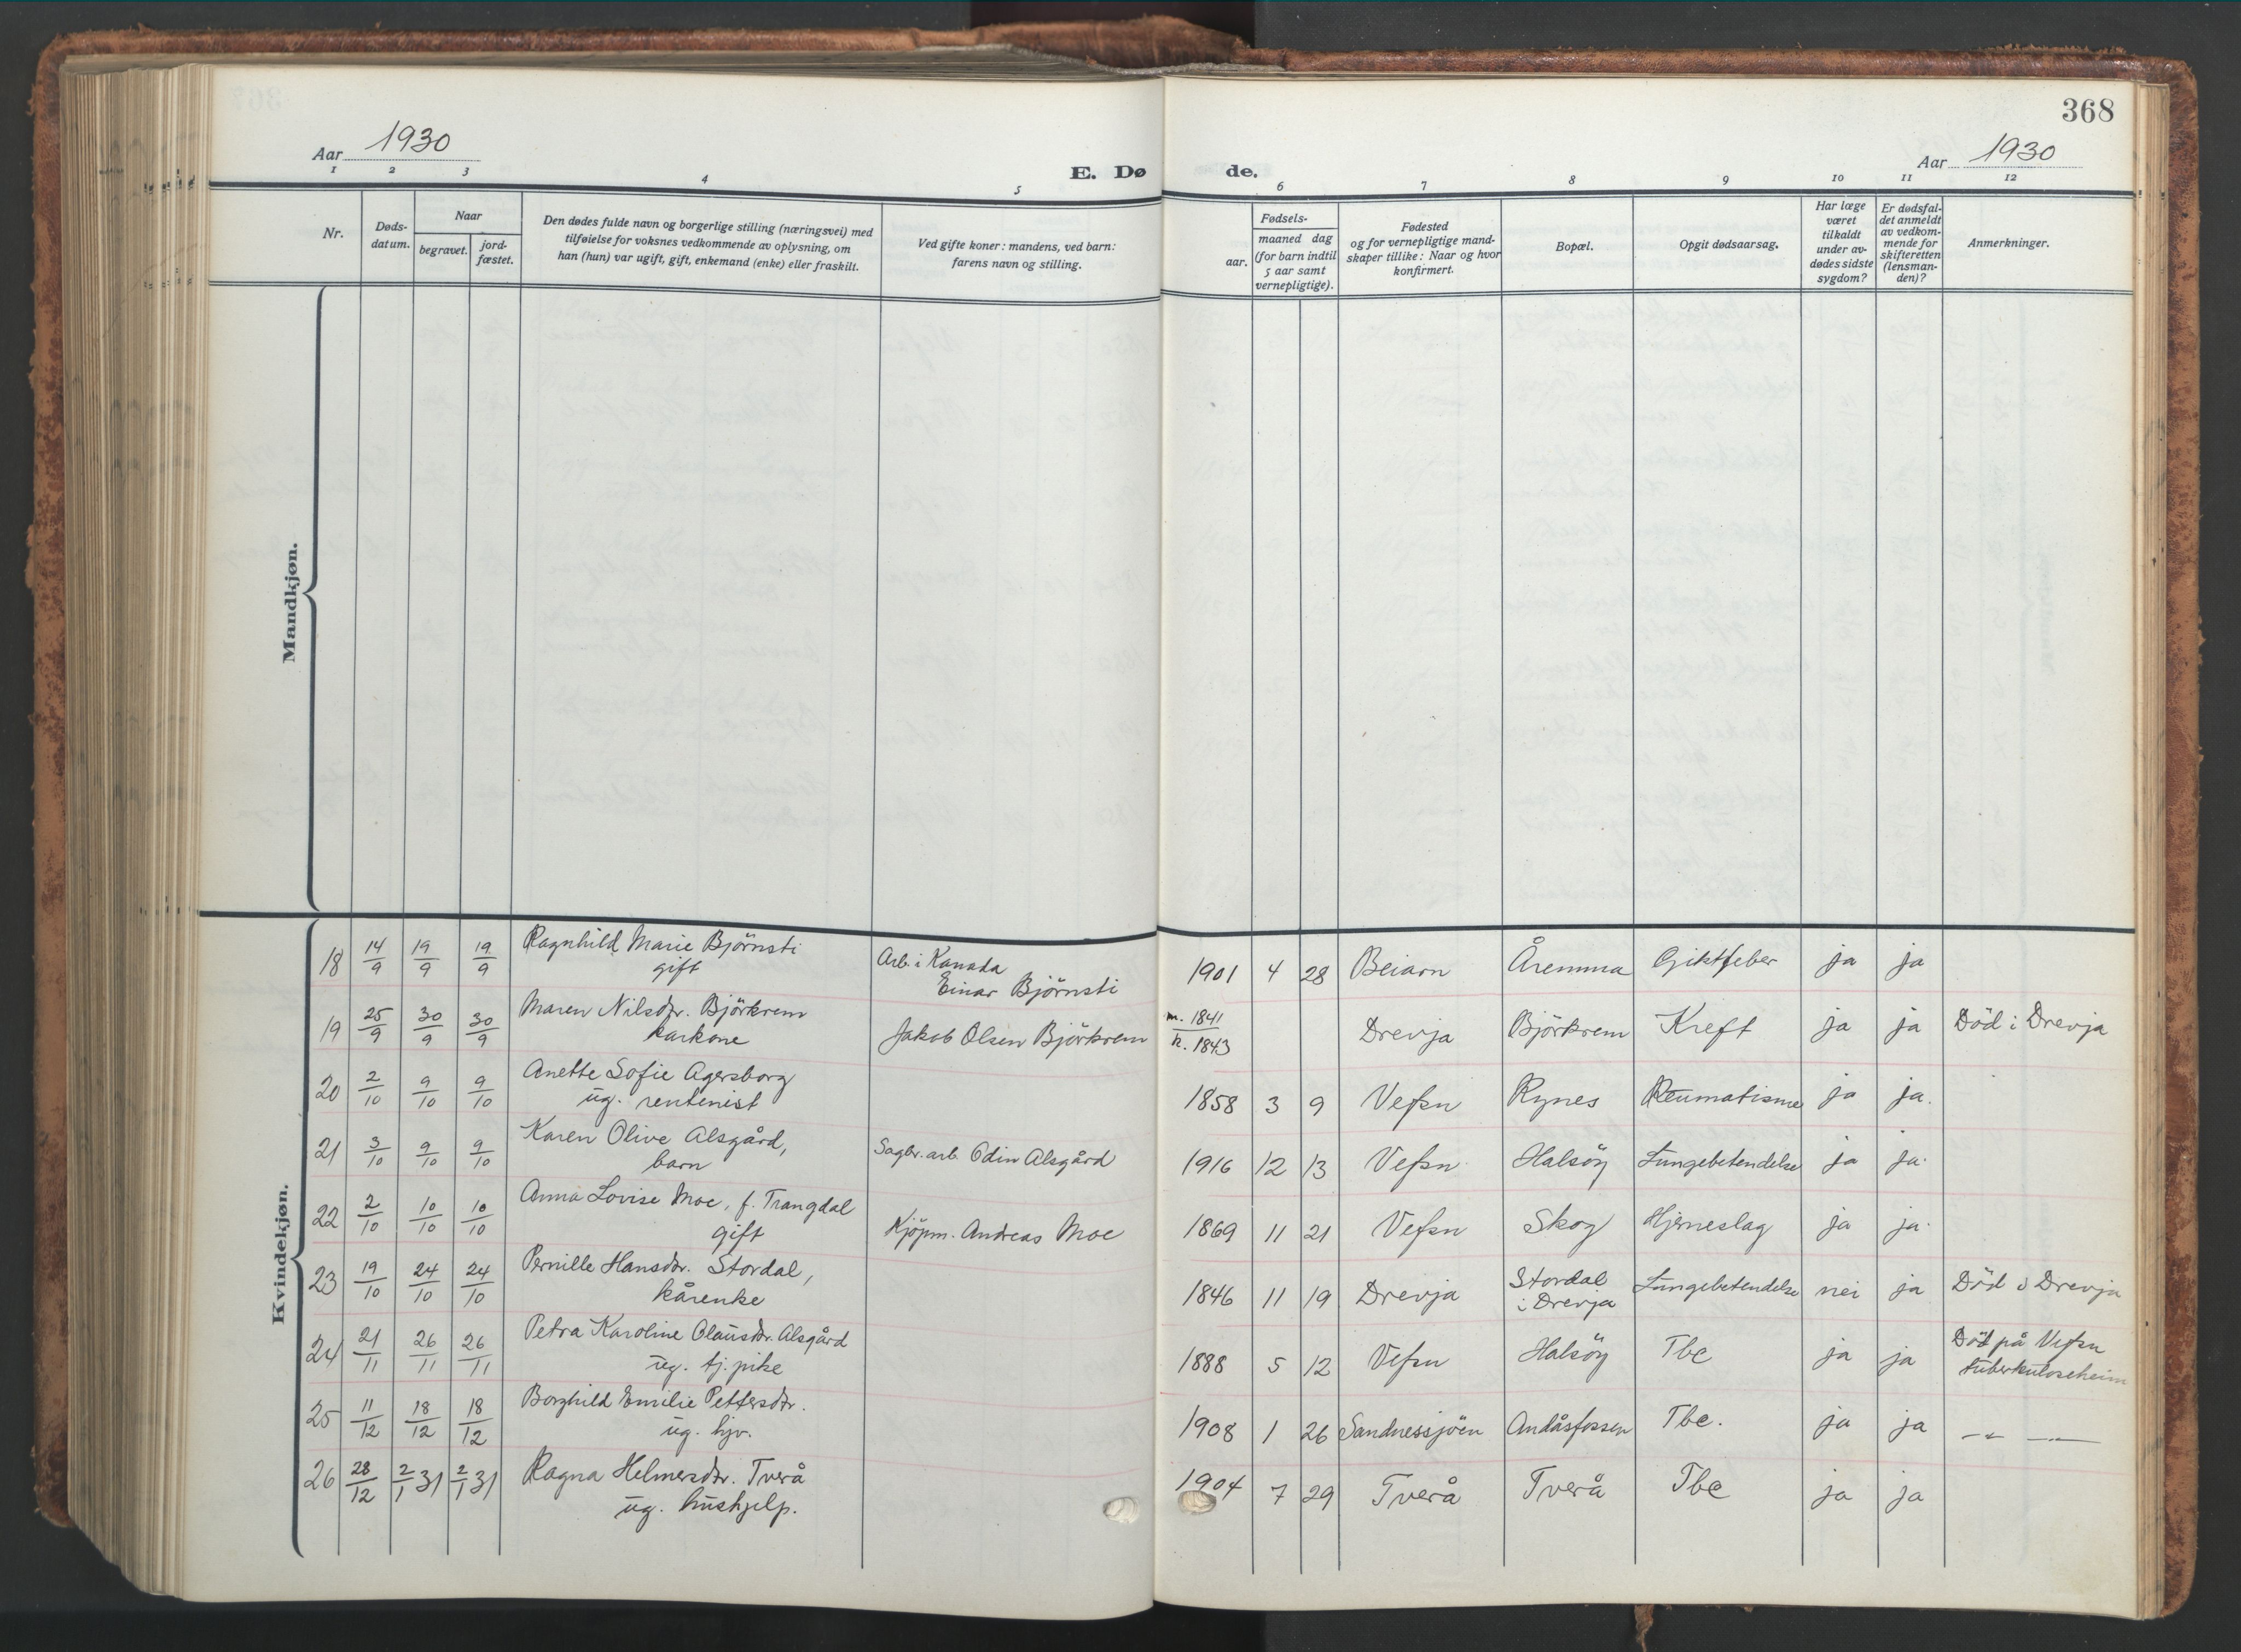 368
Aar 1930
E. Dø
de.
Aar 1930
1 2 3 4 5 6 7 8 9 10 11 12
Nr.
Døds-
datum.
Naar
begravet.
jord-
fæstet.
Den dødes fulde navn og borgerlige stilling (næringsvei) med
tilføielse for voksnes vedkommende av oplysning, om
han (hun) var ugift, gift, enkemand (enke) eller fraskilt.
Ved gifte koner: mandens, ved barn:
farens navn og stilling.
Fødsels-
aar.
maaned dag
(for barn indtil
5 aar samt
vernepligtige).
Fødested
og for vernepligtige mand-
skaper tillike: Naar og hvor
konfirmert.
Bopæl.
Opgit dødsaarsag.
Har læge
været
tilkaldt
under av-
dødes sidste
sygdom?
Er dødsfal-
det anmeldt
av vedkom-
mende for
skifteretten
(lensman-
den)?
Anmerkninger.
Mandkjøn.
Kvindekjøn.
18 14/9 19/9 19/9 Ragnhild Marie Björnsti
gift
Arb. i Kanada
Einar Björnsti
1901 4 28 Beiarn Åremma Giktfeber ja ja
19 25/9 30/9 30/9 Maren Nilsdtr. Björkrem
karkone
Jakob Olsen Björkrem
m. 1841
k. 1843
Drevja Björkrem Kreft ja ja Död i Drevja
20 2/10 9/10 9/10 Anette Sofie Agersborg
ug. rentenist
1858 3 9 Vefsn Rynes Reumatisme ja ja.
21 3/10 9/10 9/10 Karen Olive Alsgård,
barn
Sagbr. arb. Odin Alsgård
1916 12 13 Vefsn Halsöy Lungebetendelse ja ja.
22 2/10 10/10 10/10 Anna Lovise Moe, f. Trangdal
gift
Kjöpm. Andreas Moe
1869 11 21 Vefsn Skog Hjerneslag ja ja.
23 19/10 24/10 24/10 Pernille Hansdtr. Stordal,
kårenke
1846 11 19 Drevja Stordal
i Drevja
Lungebetendelse nei ja Död i Drevja
24 21/11 26/11 26/11 Petra Karoline Olausdtr. Alsgård
ug. tj. pike
1888 5 12 Vefsn Halsöy Tbc ja ja Död på Vefsn
tuberkuloseheim
25 11/12 18/12 18/12 Borghild Emilie Pettersdtr.
ug. hjv.
1908 1 26 Sandnessjöen Andåsfossen Tbc. ja ja —"— —"—
26 28/12 2/1 31 2/1 31 Ragna Helmersdtr. Tverå
ug. hushjelp.
1904 7 29 Tverå Tverå Tbc ja ja